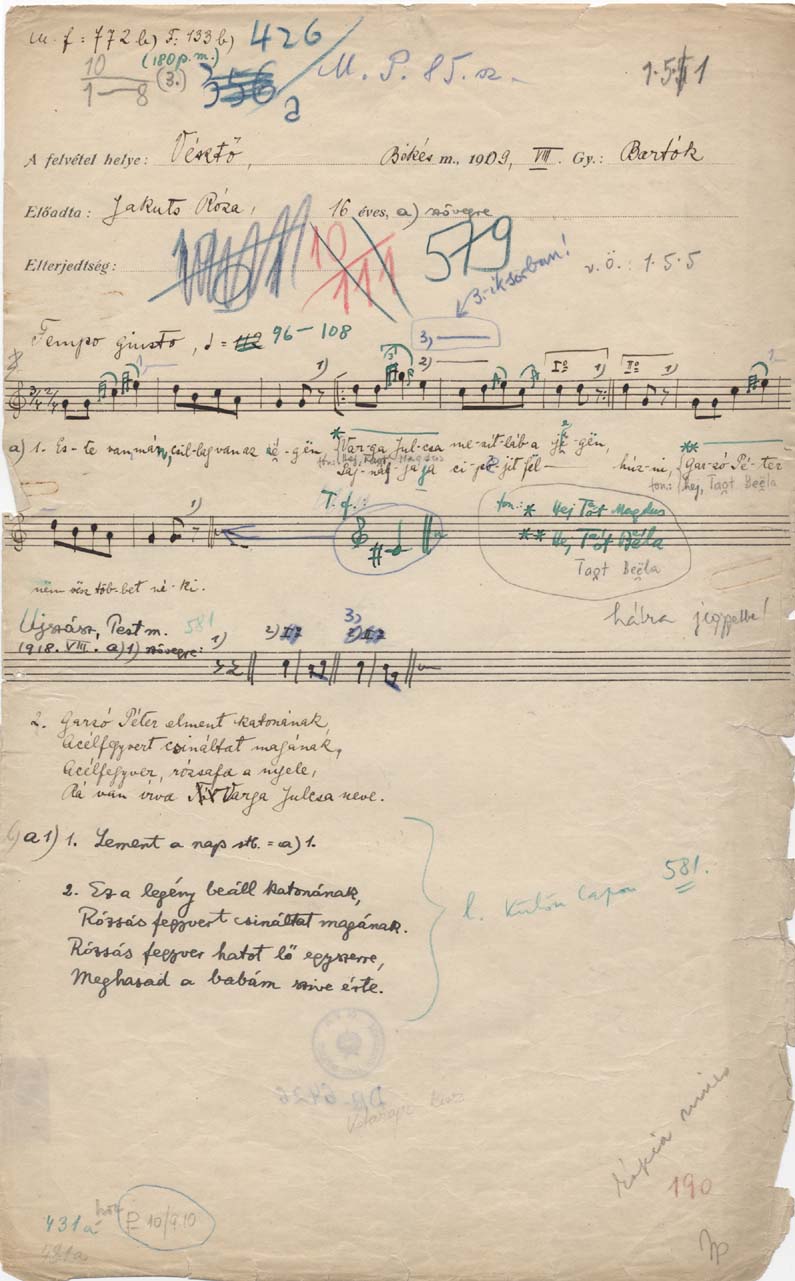 M. f: 772 b) F: 133 b) 426
(180 p. m.)
10 (3.) 356 M. P. 85. sz. 1.5.1
1—8 a
A felvétel helye: Vésztő, Békés m., 1909, VIII. Gy.: Bartók
Előadta: Jakuts Róza, 16 éves, a) szövegre
Elterjedtség: 10 111 579 v. ö.: 1.5.5
3.-ik sorban!
Tempo giusto, 96—108
3)
2)
1) I° 1) II°
a) 1. Es-te van már, csil-lag van az é-gën, Var-ga Jul-csa me-zit-láb a jé-gën,
húz-ni, Gar-zó Pé-ter
ton.: Hej, Taot Beëla
1) T. f.: ton.: * Hej Tót Magdus
** He, Tót Béla
Taot Beëla
nëm vësz töb-bet né-ki.
hátra jeggyekbe!
Ujszász, Pest m. 581
1918. VIII. a) 1) szövegre: 1) 2) 3)
2. Garzó Péter elment katonának,
Acélfegyvert csináltat magának,
Acélfegyver, rózsafa a nyele,
Rá van írva Varga Julcsa neve.
a1) 1. Lement a nap stb. = a) 1.
2. Ez a legény beáll katonának,
Rózsás fegyvert csináltat magának.
Rózsás fegyver hatot lő egyszerre,
Meghasad a babám szive érte.
l. külön lapon 581.
kópia nincs
190
431a P 10/910
431a